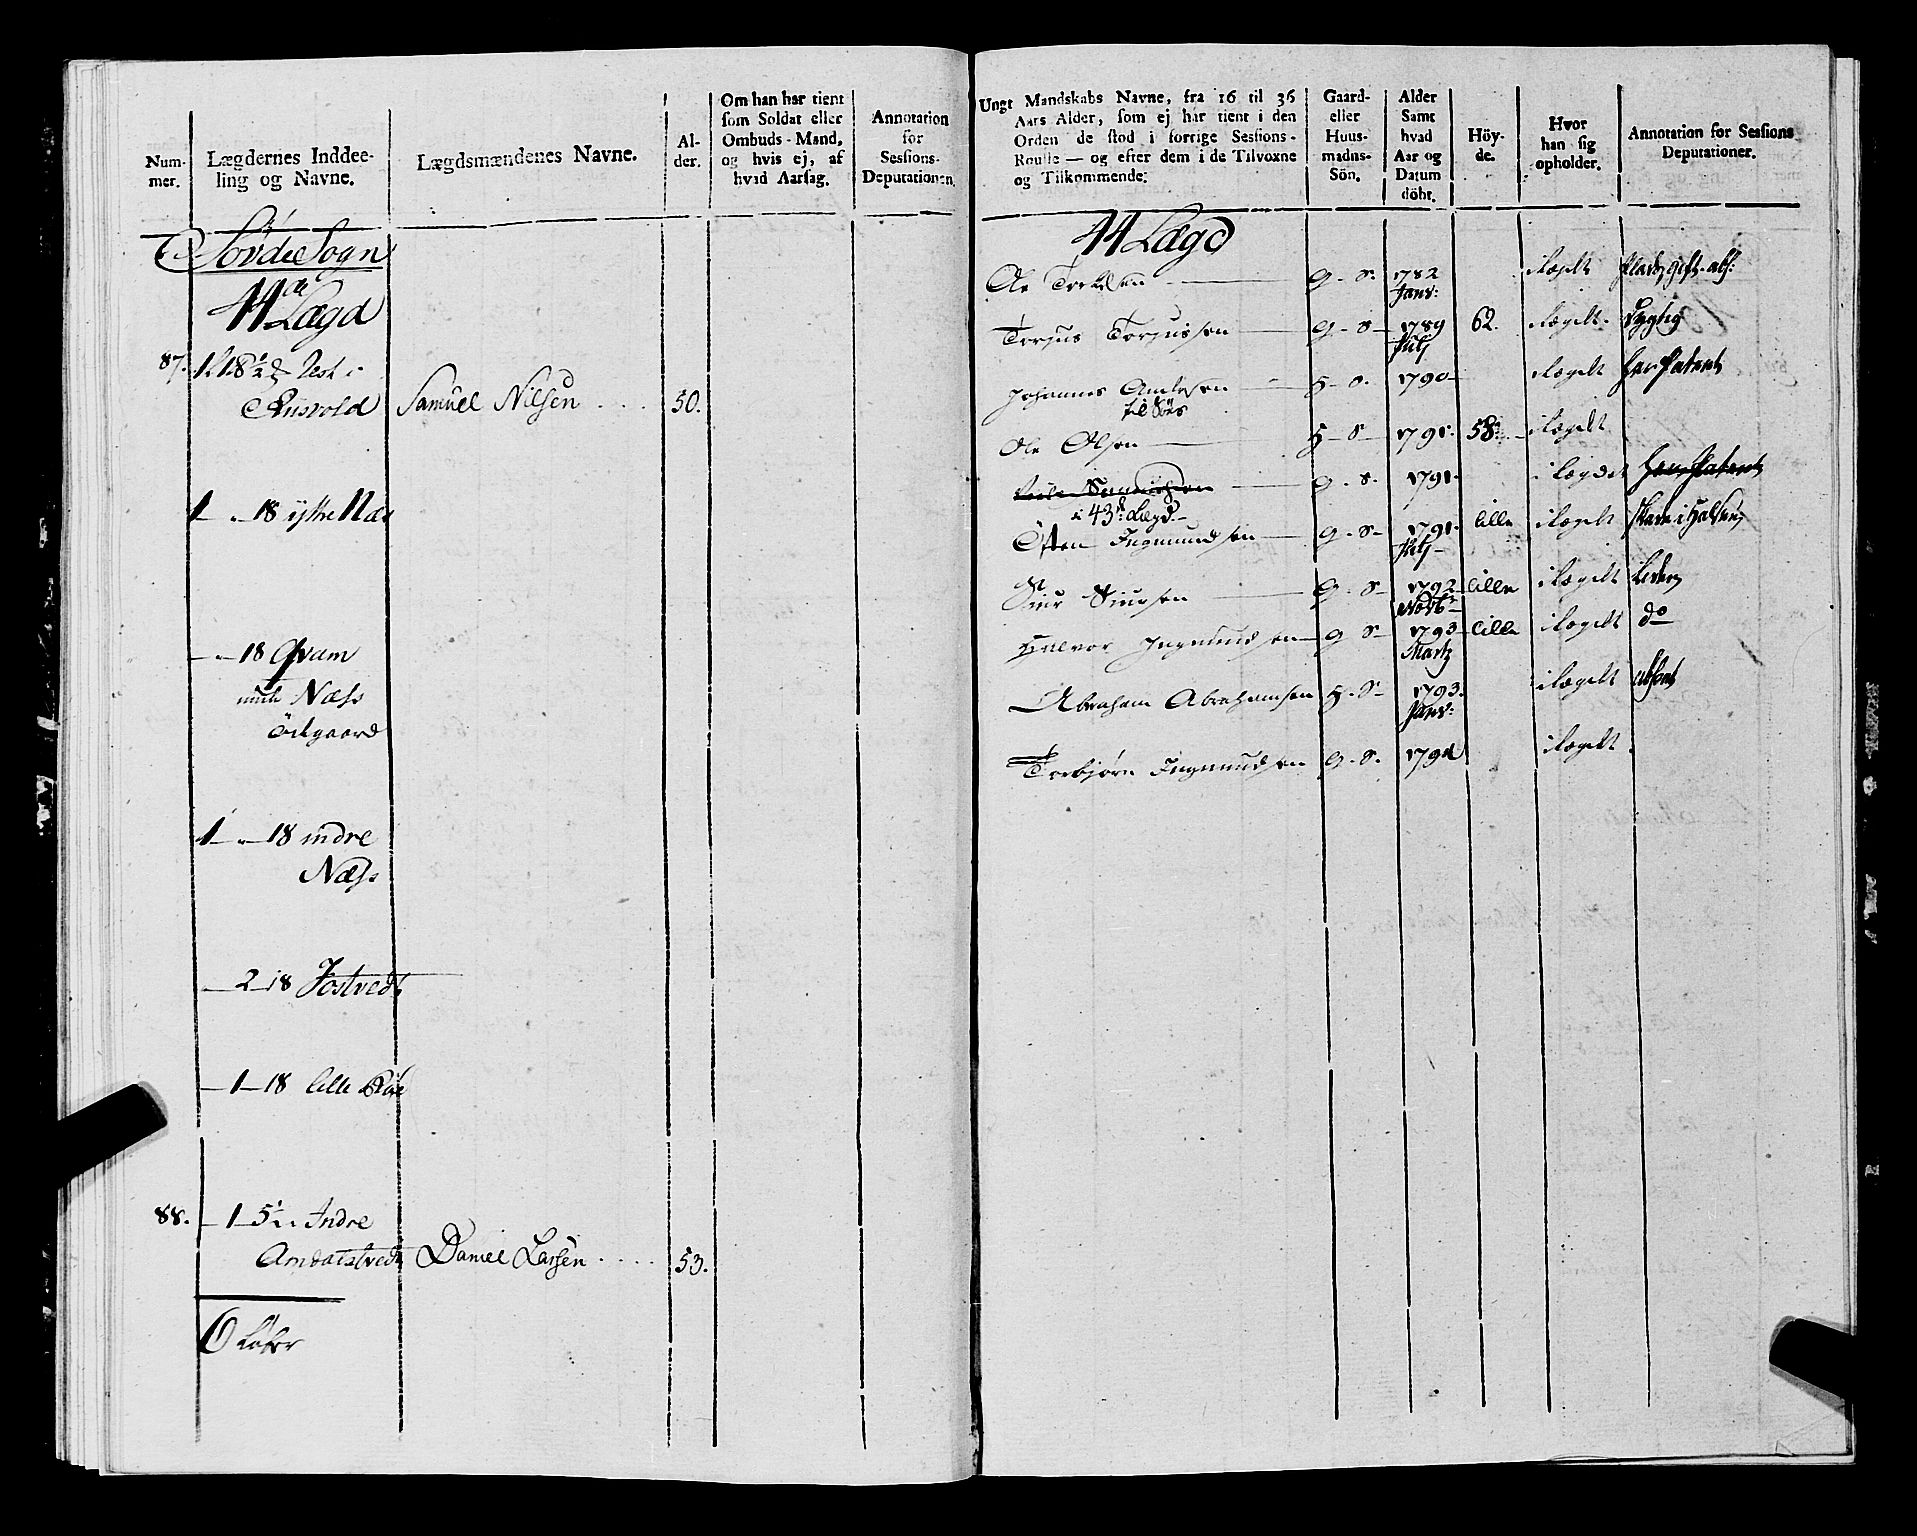 Num-
mer.
Lægdernes Inddee-
ling og Navne.
Lægdsmændenes Navne.
Al-
der.
Om han har tient
som Soldat eller
Ombuds-Mand,
og hvis ej, af
hvad Aarsag.
Annotation
for
Sessions-
Deputationen.
Sövde Sogn
44de Lægd
87. 1 18½ Vest i
Rusvold Samuel Nilsen .... 50.
1 18 ystre Næs
18 Qvam
Næss
Ödegaard
1 18 indre
Næss
2 18 Jostvedt
1 18 lille
88. 1 5½ Indre
Amdalstvedt Daniel Larsen .... 53.
6 Løber
Ungt Mandskabs Navne, fra 16 til 36
Aars Alder, som ej har tient i den
Orden de stod i forrige Sessions-
Roulle — og efter dem i de Tilvoxne
og Tilkommende.
Gaard-
eller
Huus-
mands-
Sön.
Alder
Samt
hvad
Aar og
Datum
döbt.
Höy-
de.
Hvor
han sig
opholder.
Annotation for Sessions
Deputationer.
44 Lægd
Ole G. S. 1782 i Lægdt gift. abs:
Janv:
Torjus Torjussen G. S. 1789 62. i Lægdt Sygelig
July
Johannes H. S. 1790 i Lægdt har Patent
til Söes
Ole Olsen H. S. 1791. 58. i Lægdt
G. S. 1791. i Lægdet har Patent
i 43de Lægd
Östen Ingmundsen G. S. 1791. lille i Lægdt
July
Siur Siursen G. S. 1792 lille i Lægdt
Novbr
Halvor Ingmundsen G. S. 1793 lille i Lægdt do
Martz
Abraham Abrahamsen H. S. 1793. i Lægdt absent
Janv:
Torbjörn Ingmundsen G. S. 1794 i Lægdt